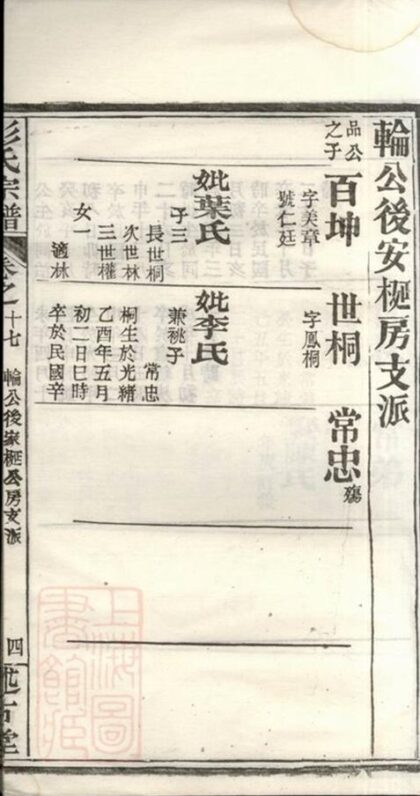 輪公後安榧房支派
品公
之子
百坤
字美章
號仁廷
妣葉氏
子三
長世桐
次世林
三世權
女一
適林
世桐
字鳳桐
妣李氏
兼祧子
常忠
桐生於光緒
乙酉年五月
初二日巳時
卒於民國辛
常忠
殤
彭氏宗譜
卷之十七
輪公後安榧公房支派
四
述古堂
上海圖
書館藏